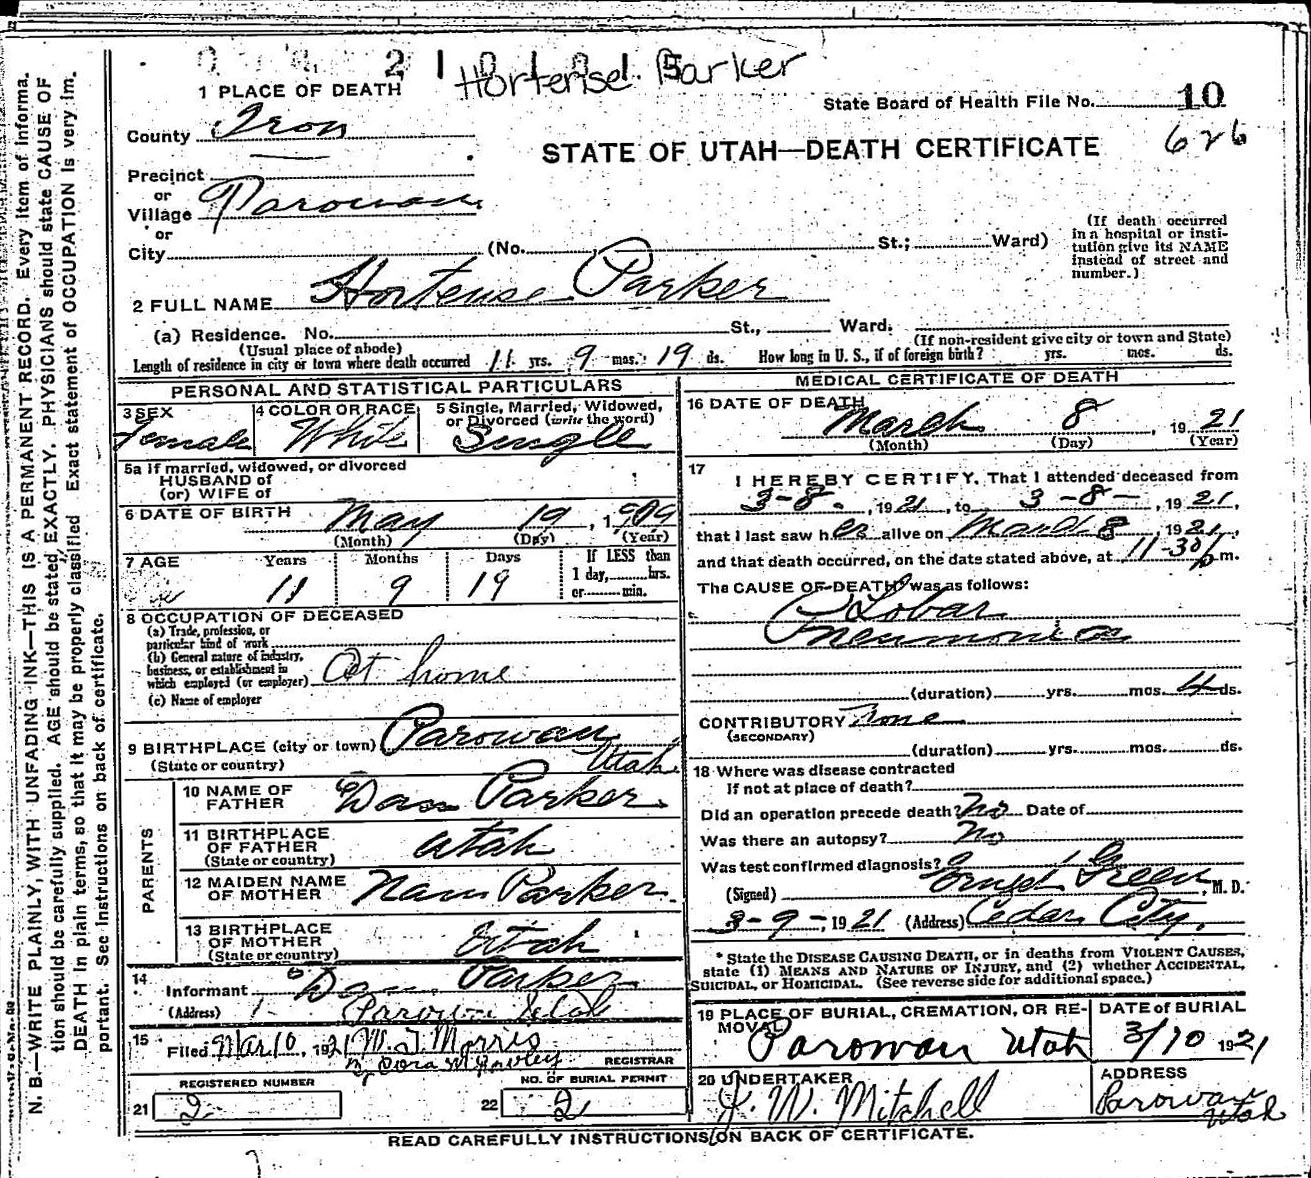 2 1 Hortense Parker
1 PLACE OF DEATH
State Board of Health File No. 10
County Iron
STATE OF UTAH—DEATH CERTIFICATE 626
Precinct
or
Village Parowan
or
City (No. St.; Ward)
(If death occurred in a hospital or insti-
tution give its NAME
instead of street and
number.)
2 FULL NAME Hortense Parker
(a) Residence. No. St., Ward.
(Usual place of abode) (If non-resident give city or town and State)
Length of residence in city or town where death occurred 11 yrs. 9 mos. 19 ds. How long in U. S., if of foreign birth? yrs. mos. ds.
PERSONAL AND STATISTICAL PARTICULARS
3 SEX
Female
4 COLOR OR RACE
White
5 Single, Married, Widowed,
or Divorced (write the word)
Single
5a If married, widowed, or divorced
HUSBAND of
(or) WIFE of
6 DATE OF BIRTH May 19, 1909
(Month) (Day) (Year)
7 AGE Years Months Days If LESS than
1 day, hrs.
or min.
11 9 19
8 OCCUPATION OF DECEASED
(a) Trade, profession, or
particular kind of work
(b) General nature of industry,
business, or establishment in
which employed (or employer) At home
(c) Name of employer
9 BIRTHPLACE (city or town) Parowan
(State or country) Utah
PARENTS
10 NAME OF
FATHER Dan Parker
11 BIRTHPLACE
OF FATHER Utah
(State or country)
12 MAIDEN NAME
OF MOTHER Parker
13 BIRTHPLACE
OF MOTHER Utah
(State or country)
14
Informant Dan Parker
(Address) Parowan Utah
15 Filed Mar 10, 1921 W. J. Morris
REGISTRAR
REGISTERED NUMBER
21 2
NO. OF BURIAL PERMIT
22 2
MEDICAL CERTIFICATE OF DEATH
16 DATE OF DEATH
March 8, 1921
(Month) (Day) (Year)
17
I HEREBY CERTIFY, That I attended deceased from
3-8-, 1921, to 3-8-, 1921,
that I last saw her alive on March 8, 1921,
and that death occurred, on the date stated above, at 11-30 p m.
The CAUSE OF DEATH* was as follows:
Lobar
Pneumonia
(duration) yrs. mos. 4 ds.
CONTRIBUTORY None
(SECONDARY)
(duration) yrs. mos. ds.
18 Where was disease contracted
If not at place of death?
Did an operation precede death? No Date of
Was there an autopsy? No
Was test confirmed diagnosis?
(Signed) Green, M. D.
3-9-, 1921 (Address) Cedar City,
* State the DISEASE CAUSING DEATH, or in deaths from VIOLENT CAUSES,
state (1) MEANS AND NATURE OF INJURY, and (2) whether ACCIDENTAL,
SUICIDAL, or HOMICIDAL. (See reverse side for additional space.)
19 PLACE OF BURIAL, CREMATION, OR RE-
MOVAL
Parowan Utah
DATE of BURIAL
3/10 1921
20 UNDERTAKER
J. W. Mitchell
ADDRESS
Parowan
Utah
READ CAREFULLY INSTRUCTIONS ON BACK OF CERTIFICATE.
N. B.—WRITE PLAINLY, WITH UNFADING INK—THIS IS A PERMANENT RECORD. Every item of informa-
tion should be carefully supplied. AGE should be stated EXACTLY. PHYSICIANS should state CAUSE OF
DEATH in plain terms, so that it may be properly classified Exact statement of OCCUPATION is very im-
portant. See instructions on back of certificate.